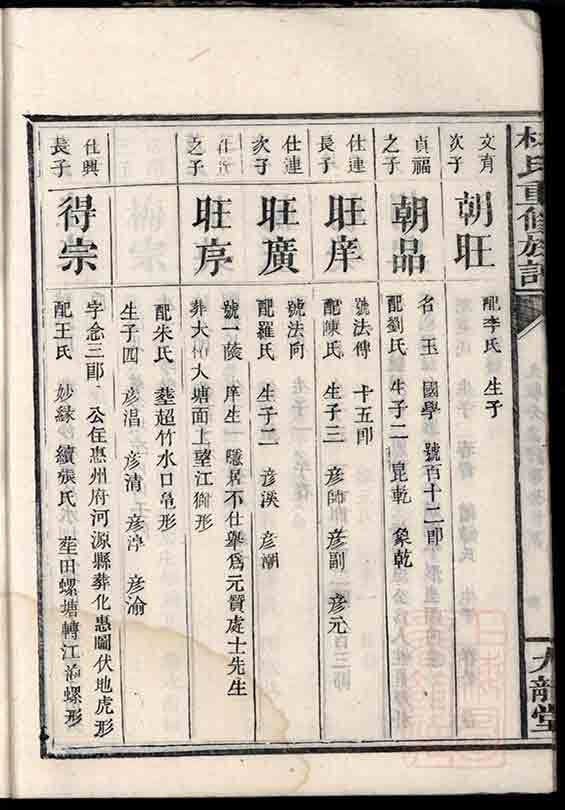 杜氏重修族譜
九龍堂
文有次子
朝旺
配李氏 生子
貞福之子
朝品
名玉 國學 號百十二郎
配劉氏 生子二 昆乾 象乾
仕連長子
旺庠
號法傳 十五郎
配陳氏 生子三 彦師 彦副 彦元
仕連次子
旺廣
號法向
配羅氏 生子二 彦溪 彦潮
之子
旺序
號一陵 庠生 隱居不仕舉爲元贊處士先生
葬大 大塘面上望江獅形
配朱氏 葬超竹水口龟形
生子四 彦淐 彦清 彦淳 彦渝
仕興長子
得宗
字念三郎 公在惠州府河源縣葬化惠圖伏地虎形
配王氏 妙緣 續張氏 葬田螺塘轉江 螺形